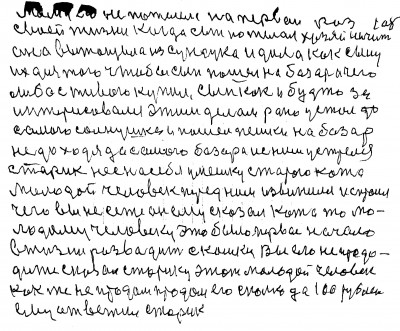 не по первой раз
своей жизни когда сын хозяйничит
она вытощила из сундука и дала как сыну
их для того чтобы сын пошел на базар чего
либо с твово купил, сын как и будто за
интерисовался этим делом рано устал до
самого солнушка и пошел пешки на базар
не доходя до самого базара с ним устрелся
старик нес на себя у мешку старого кота
молодой человек перед ним извинился и спросил
чего вы несете он ему сказал кота то мо-
лодому человеку это было первое начало
в жизни разводит с кошки Вы его не продо-
дите сказал старику этот молодой человек
как же не продам продам его сколко да 100 рублей
ему ответил старик